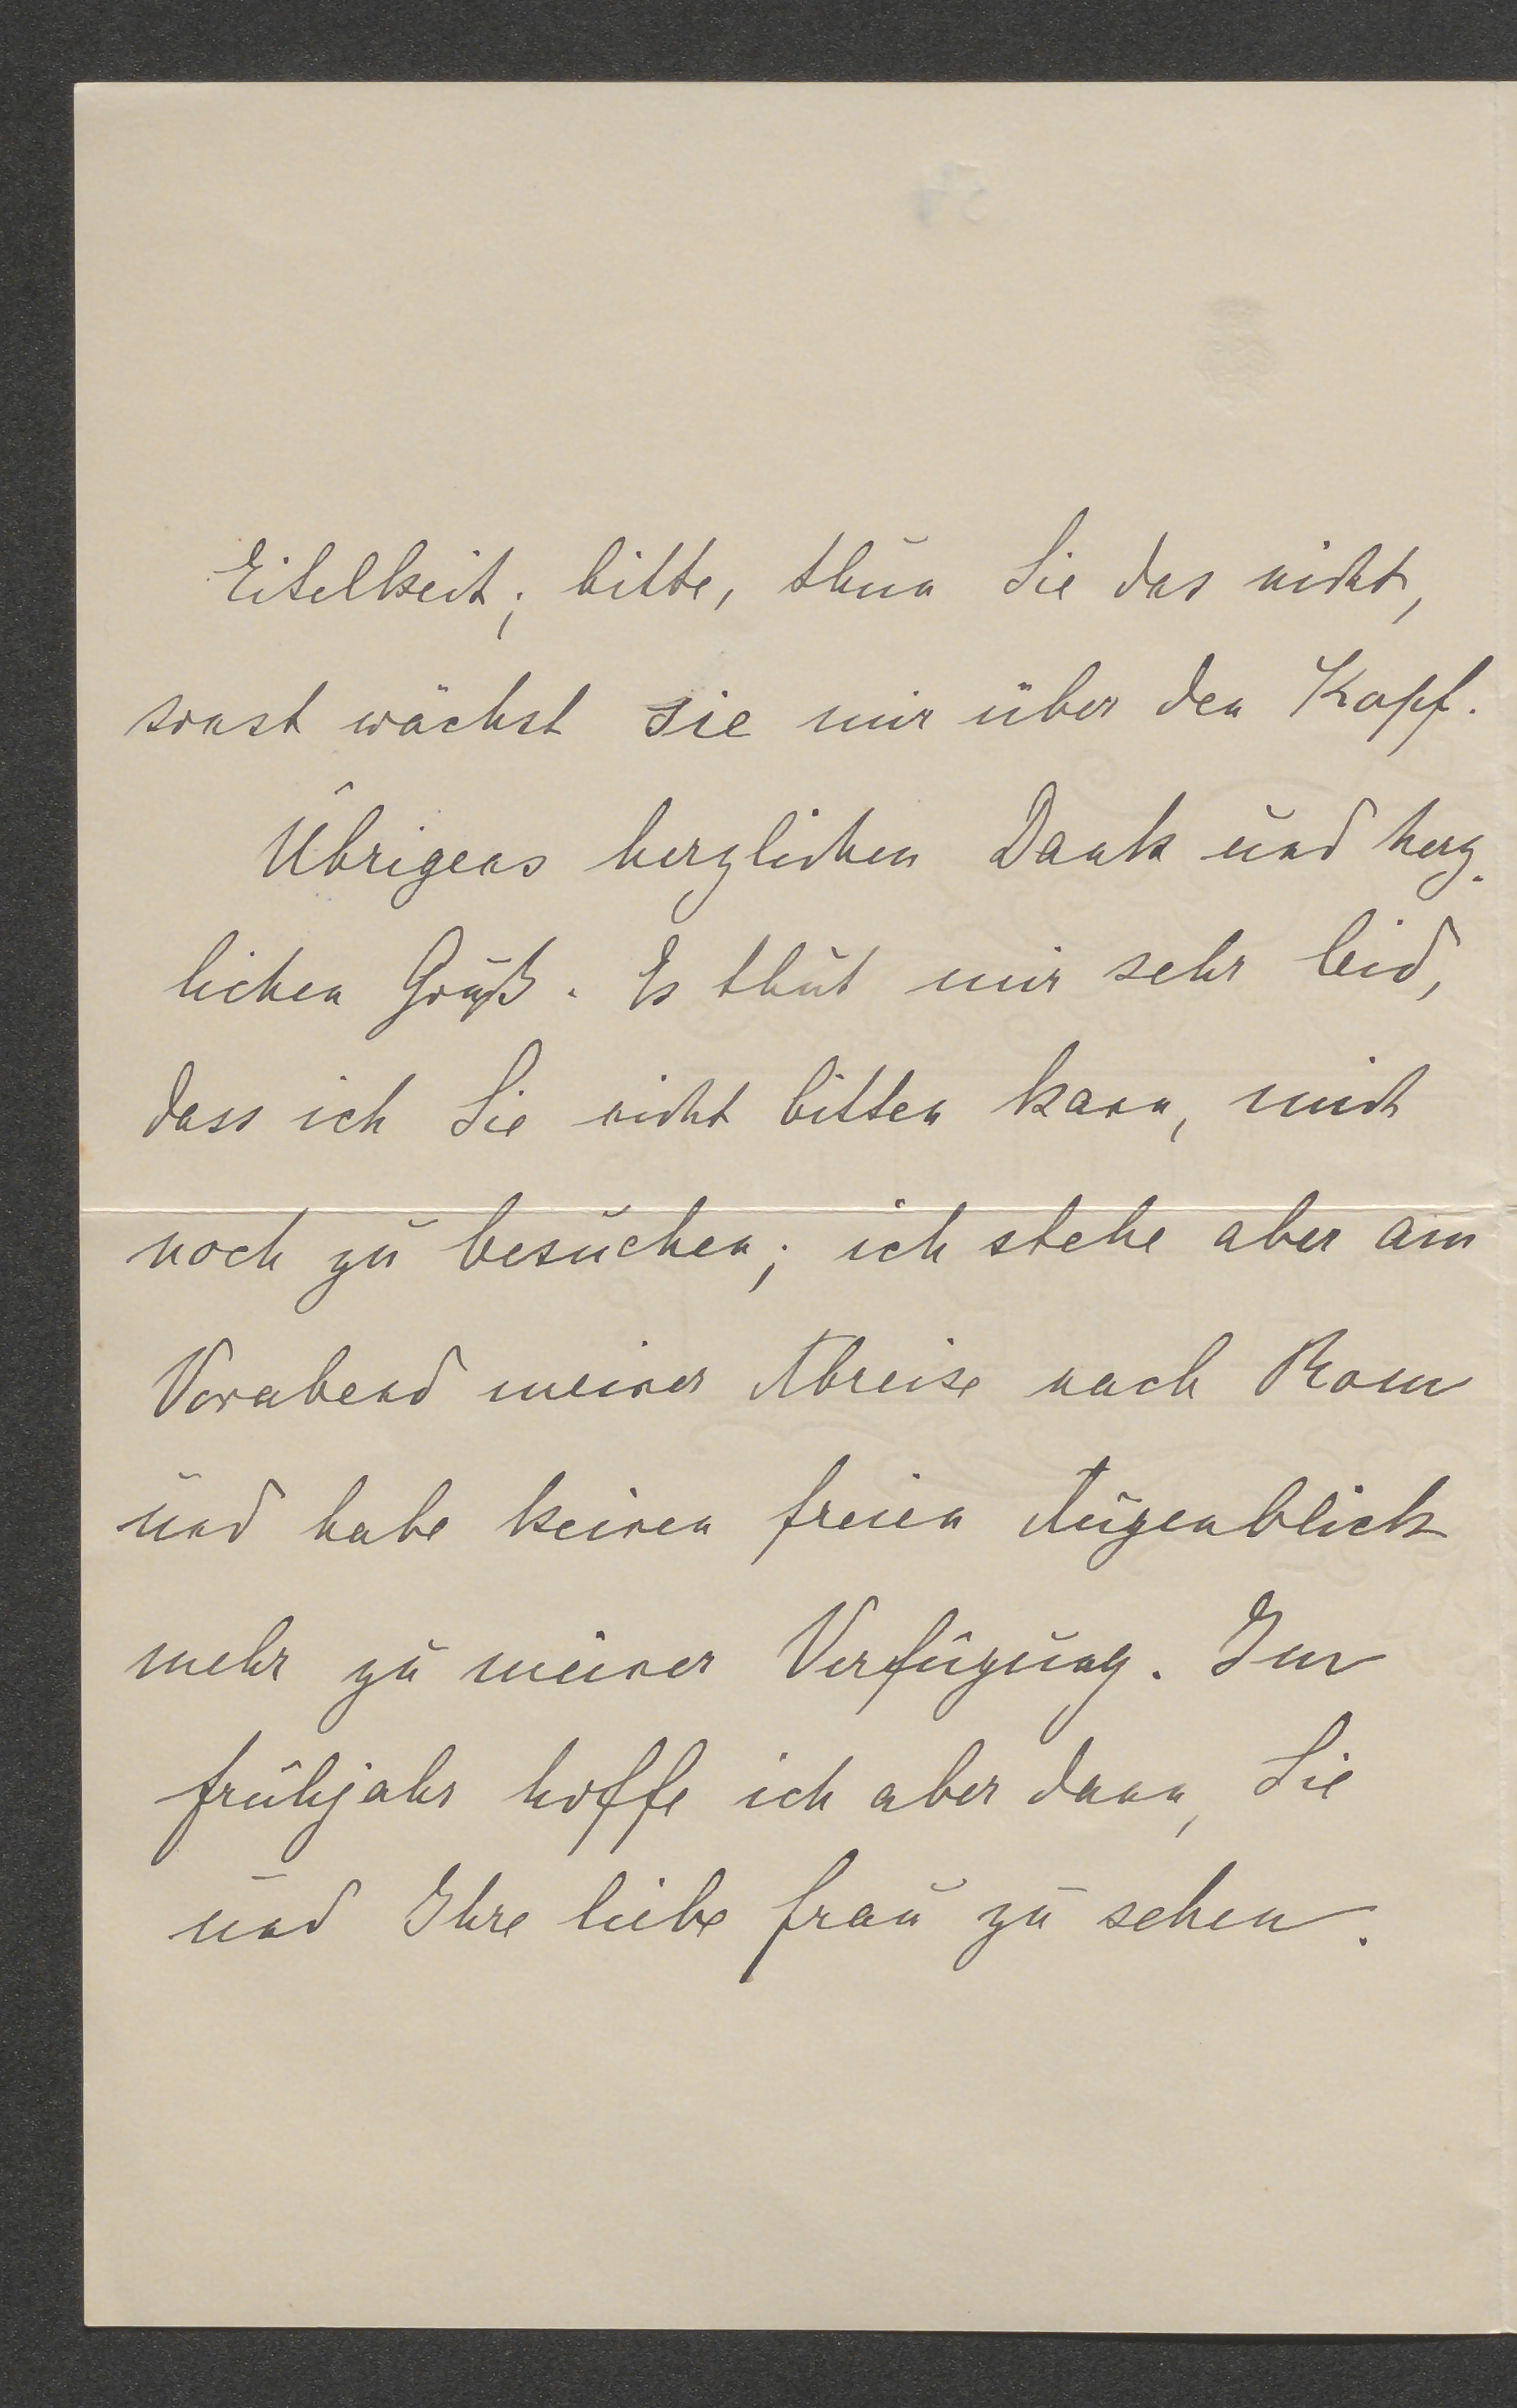 Eitelkeit; bitte, thun Sie das nicht,
sonst wächst sie mir über den Kopf.
Übrigens herzlichen Dank und herz-
lichen Gruß. Es thut mir sehr leid,
dass ich Sie nicht bitten kann, mich
noch zu besuchen; ich stehe aber am
Vorabend meiner Abreise nach Rom
und habe keinen freien Augenblick
mehr zu meiner Verfügung. Im
Frühjahr hoffe ich aber dann, Sie
und Ihre liebe Frau zu sehen.